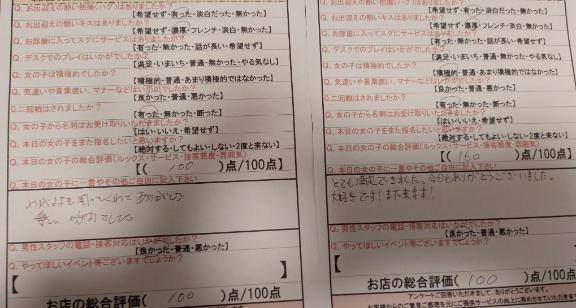 Q. お出迎えの熱い抱擁(ハグ)はありましたか?
【希望せず・有った・淡白だった・無かった】
Q. お出迎えの熱いキスはありましたか?
【希望せず・濃厚・フレンチ・淡白・無かった】
Q. お部屋に入ってスグにサービスはありましたか?
【有った・無かった・話が長い・希望せず】
Q. デスクでのプレイはいかがでしたか?
【満足・いまいち・普通・無かった・やる気なし】
Q. 女の子は積極的でしたか?
【積極的・普通・あまり積極的ではなかった】
Q. 気遣いや言葉使い、マナーなどはいかがでしたか?
【良かった・普通・悪かった】
Q. 二回戦はされましたか?
【有った・無かった・断った】
Q. 女の子から名刺はお受け取りいただきましたか?
【はい・いいえ・希望せず】
Q. 本日の女の子をまた指名したいと思いますか?
【絶対する・してもよい・しない・2度と来ない】
Q. 本日の女の子の総合評価(ルックス・サービス・接客態度・雰囲気)
【( 100 )点/100点】
Q. 本日の女の子に一言やその他ご自由に記入下さい
Q. 男性スタッフの電話・接客対応はいかがでしたか?
【良かった・普通・悪かった】
Q. やってほしいイベント等ございますでしょうか?
【
お店の総合評価( 100 )点/100点
【希望せず・有った・淡白だった・無かった】
Q. お出迎えの熱いキスはありましたか?
【希望せず・濃厚・フレンチ・淡白・無かった】
Q. お部屋に入ってスグにサービスはありましたか?
【有った・無かった・話が長い・希望せず】
Q. デスクでのプレイはいかがでしたか?
【満足・いまいち・普通・無かった・やる気なし】
Q. 女の子は積極的でしたか?
【積極的・普通・あまり積極的ではなかった】
Q. 気遣いや言葉使い、マナーなどはいかがでしたか?
【良かった・普通・悪かった】
Q. 二回戦はされましたか?
【有った・無かった・断った】
Q. 女の子から名刺はお受け取りいただきましたか?
【はい・いいえ・希望せず】
Q. 本日の女の子をまた指名したいと思いますか?
【絶対する・してもよい・しない・2度と来ない】
Q. 本日の女の子の総合評価(ルックス・サービス・接客態度・雰囲気)
【( 160 )点/100点】
Q. 本日の女の子に一言やその他ご自由に記入下さい
とても満足できました。今日もありがとうございました。
大好きです! また来ます!
Q. 男性スタッフの電話・接客対応はいかがでしたか?
【良かった・普通・悪かった】
Q. やってほしいイベント等ございますでしょうか?
【
お店の総合評価( 100 )点/100点
アンケートご回答いただきまして、ありがとうございます。